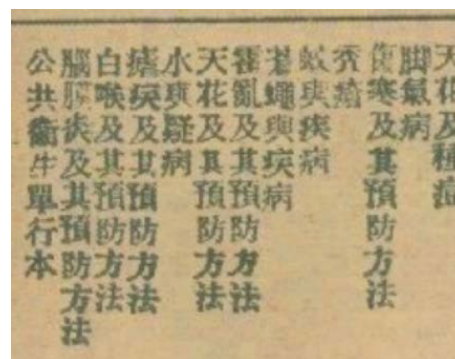 天花及種痘
脚氣病
傷寒及其預防方法
禿瘡
蚊與疾病
蒼蠅與疾病
霍亂及其預防方法
天花及其預防方法
水與疾病
瘧疾及其預防方法
白喉及其預防方法
腦膜炎及其預防方法
公共衛生單行本